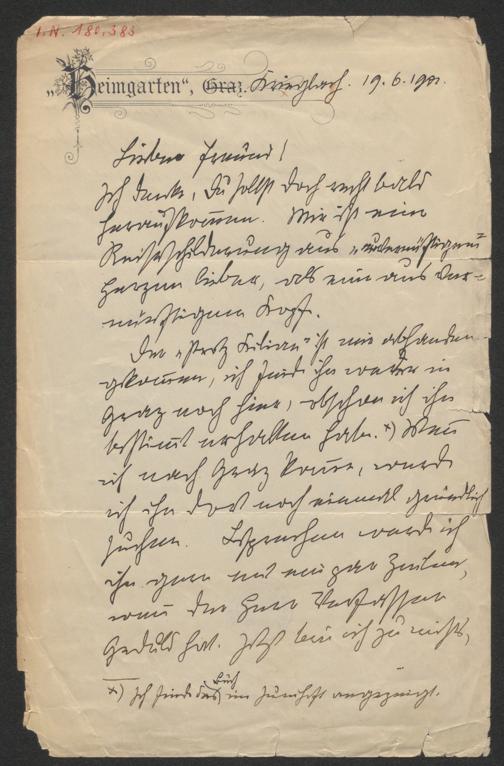 I.N. 180.383
„Heimgarten“, Graz. Krieglach. 19.6.190
Lieber Freund!
Ich denke, Du sollst doch recht bald
herauskommen. Mir ist eine
Reiseschilderung aus „unvernünftigem“
Herzen lieber, als eine aus ver-
nünftigem Kopf.
Der „Kilian“ ist mir abhanden
gekommen, ich finde ihn weder in
Graz noch hier, obschon ich ihn
bestimmt erhalten habe. *) Wenn
ich nach Graz komme, werde
ich ihn dort noch einmal gründlich
suchen. Besprechen werde ich
ihn gern mit ein par Zeilen,
wenn der Herr Verfasser
Geduld hat. Jetzt bin ich zu nichts,
*) Ich finde das Buch im Juniheft angezeigt.